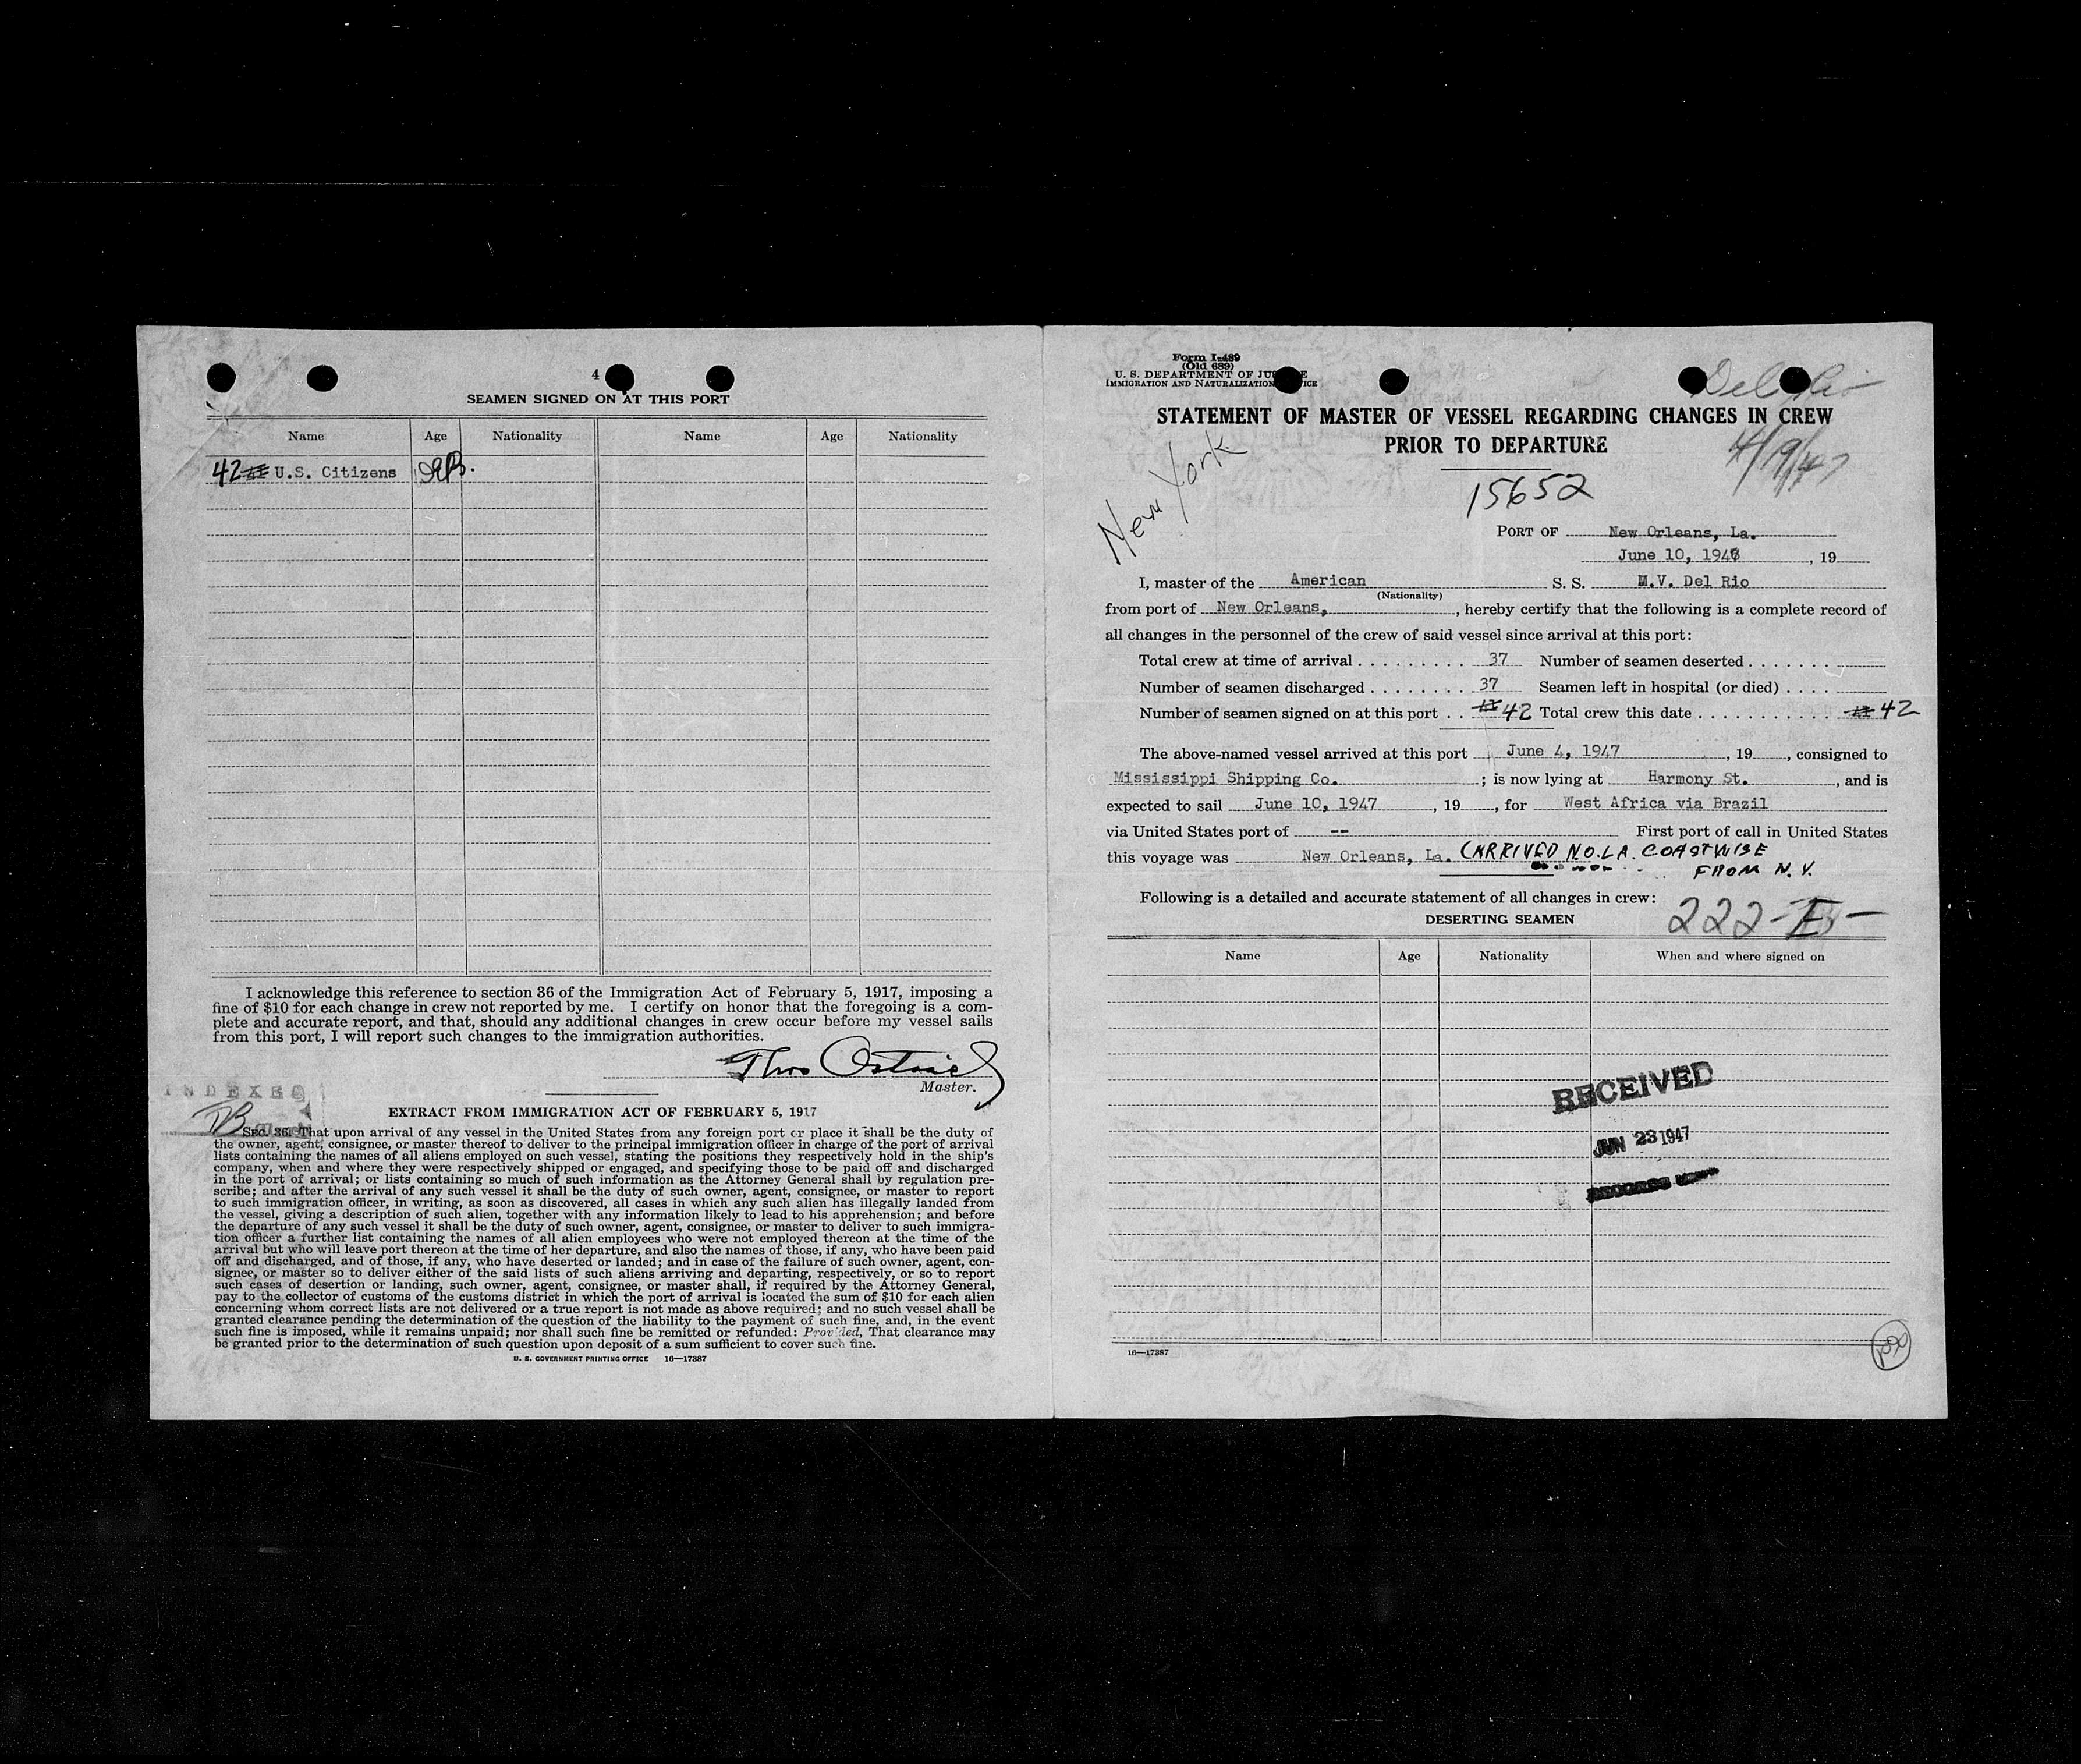 4
SEAMEN SIGNED ON AT THIS PORT
Name Age Nationality Name Age Nationality
42 U.S. Citizens
I acknowledge this reference to section 36 of the Immigration Act of February 5, 1917, imposing a
fine of $10 for each change in crew not reported by me. I certify on honor that the foregoing is a com-
plete and accurate report, and that, should any additional changes in crew occur before my vessel sails
from this port, I will report such changes to the immigration authorities.
Thos
Master.
INDEXED
EXTRACT FROM IMMIGRATION ACT OF FEBRUARY 5, 1917
SEC. 36. That upon arrival of any vessel in the United States from any foreign port or place it shall be the duty of
the owner, agent, consignee, or master thereof to deliver to the principal immigration officer in charge of the port of arrival
lists containing the names of all aliens employed on such vessel, stating the positions they respectively hold in the ship's
company, when and where they were respectively shipped or engaged, and specifying those to be paid off and discharged
in the port of arrival; or lists containing so much of such information as the Attorney General shall by regulation pre-
scribe; and after the arrival of any such vessel it shall be the duty of such owner, agent, consignee, or master to report
to such immigration officer, in writing, as soon as discovered, all cases in which any such alien has illegally landed from
the vessel, giving a description of such alien, together with any information likely to lead to his apprehension; and before
the departure of any such vessel it shall be the duty of such owner, agent, consignee, or master to deliver to such immigra-
tion officer a further list containing the names of all alien employees who were not employed thereon at the time of the
arrival but who will leave port thereon at the time of her departure, and also the names of those, if any, who have been paid
off and discharged, and of those, if any, who have deserted or landed; and in case of the failure of such owner, agent, con-
signee, or master so to deliver either of the said lists of such aliens arriving and departing, respectively, or so to report
such cases of desertion or landing, such owner, agent, consignee, or master shall, if required by the Attorney General,
pay to the collector of customs of the customs district in which the port of arrival is located the sum of $10 for each alien
concerning whom correct lists are not delivered or a true report is not made as above required; and no such vessel shall be
granted clearance pending the determination of the question of the liability to the payment of such fine, and, in the event
such fine is imposed, while it remains unpaid; nor shall such fine be remitted or refunded: Provided, That clearance may
be granted prior to the determination of such question upon deposit of a sum sufficient to cover such fine.
U. S. GOVERNMENT PRINTING OFFICE 16—17387
Form I-489
(Old 689)
U. S. DEPARTMENT OF JUSTICE
IMMIGRATION AND NATURALIZATION SERVICE
Del Rio
STATEMENT OF MASTER OF VESSEL REGARDING CHANGES IN CREW
PRIOR TO DEPARTURE
4/19/47
New York
15652
PORT OF New Orleans, La.
June 10, 1947, 19
I, master of the American S. S. M.V. Del Rio
(Nationality)
from port of New Orleans, , hereby certify that the following is a complete record of
all changes in the personnel of the crew of said vessel since arrival at this port:
Total crew at time of arrival . . . . . . . . . 37 Number of seamen deserted . . . . . . .
Number of seamen discharged . . . . . . . . 37 Seamen left in hospital (or died) . . . .
Number of seamen signed on at this port . . 42 Total crew this date . . . . . . . . . . . . 42
The above-named vessel arrived at this port June 4, 1947, 19 , consigned to
Mississippi Shipping Co. ; is now lying at Harmony St. , and is
expected to sail June 10, 1947 , 19 , for West Africa via Brazil
via United States port of -- First port of call in United States
this voyage was New Orleans, La. (ARRIVED N.O. LA. COASTWISE
FROM N.Y.
Following is a detailed and accurate statement of all changes in crew:
DESERTING SEAMEN
222-E-
Name Age Nationality When and where signed on
RECEIVED
JUN 23 1947
16—17387